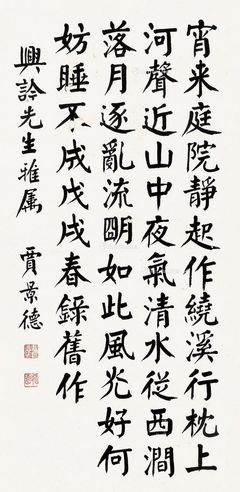 宵来庭院靜起作繞溪行枕上
河聲近山中夜氣清水從西澗
落月逐亂流明如此風光好何
妨睡不成戊戌春錄舊作
興詅先生雅属
賈景德